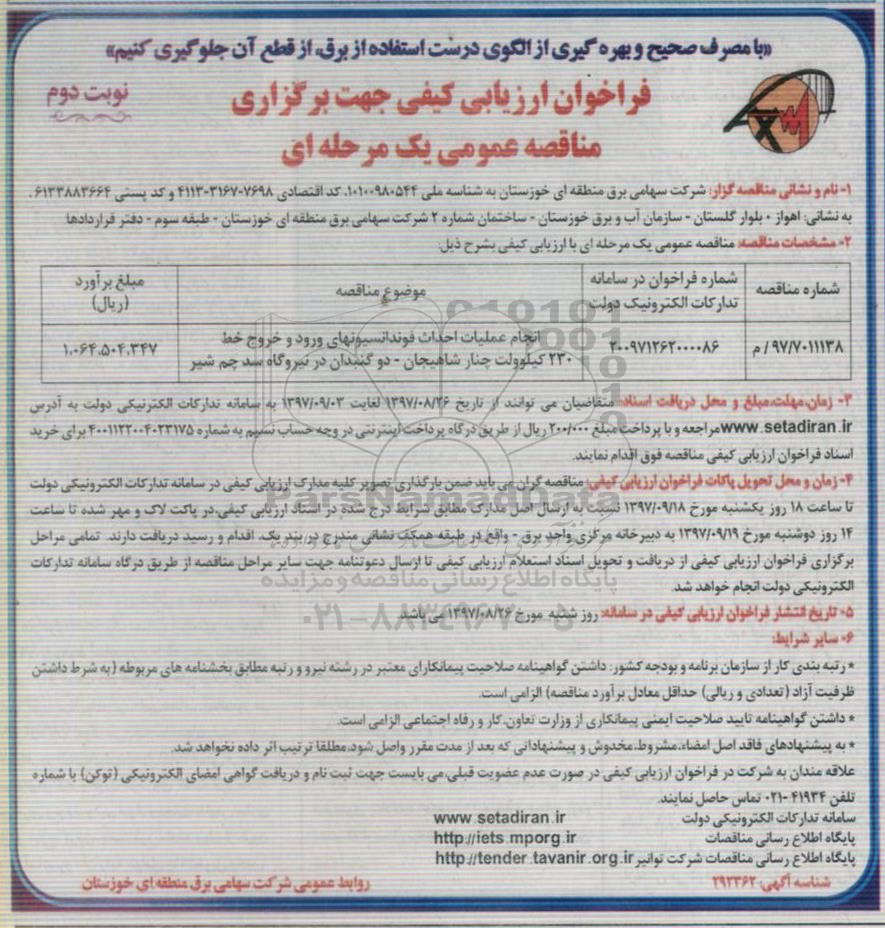 «با مصرف صحیح و بهره گیری از الگوی درست استفاده از برق، از قطع آن جلوگیری کنیم»
فراخوان ارزیابی کیفی جهت برگزاری
نوبت دوم
مناقصه عمومی یک مرحله ای
۱- نام و نشانی مناقصه گزار: شرکت سهامی برق منطقه ای خوزستان به شناسه ملی ۱۰۱۰۰۹۸۰۵۴۴، کد اقتصادی ۷۶۹۸-۳۱۶۷-۴۱۱۳ و کد پستی ۶۱۳۳۸۸۳۶۶۴ .
به نشانی: اهواز - بلوار گلستان - سازمان آب و برق خوزستان - ساختمان شماره ۲ شرکت سهامی برق منطقه ای خوزستان - طبقه سوم - دفتر قراردادها
۲- مشخصات مناقصه: مناقصه عمومی یک مرحله ای با ارزیابی کیفی بشرح ذیل:
شماره مناقصه
شماره فراخوان در سامانه تدارکات الکترونیک دولت
موضوع مناقصه
مبلغ برآورد (ریال)
۹۷/۷۰۱۱۱۳۸ / م
۲۰۰۹۷۱۲۶۲۰۰۰۰۸۶
انجام عملیات احداث فونداسیونهای ورود و خروج خط
۲۳۰ کیلوولت چنار شاهیجان - دو گنبدان در نیروگاه سد چم شیر
۱،۰۶۴،۵۰۴،۳۴۷
۳- زمان،مهلت،مبلغ و محل دریافت اسناد: متقاضیان می توانند از تاریخ ۱۳۹۷/۰۸/۲۶ لغایت ۱۳۹۷/۰۹/۰۳ به سامانه تدارکات الکترنیکی دولت به آدرس
www.setadiran.ir مراجعه و با پرداخت مبلغ ۲۰۰/۰۰۰ ریال از طریق درگاه پرداخت اینترنتی در وجه حساب تسهیم به شماره ۴۰۰۱۱۲۲۰۰۴۰۲۳۱۷۵ برای خرید
اسناد فراخوان ارزیابی کیفی مناقصه فوق اقدام نمایند.
۴- زمان و محل تحویل پاکات فراخوان ارزیابی کیفی: مناقصه گران می باید ضمن بارگذاری تصویر کلیه مدارک ارزیابی کیفی در سامانه تدارکات الکترونیکی دولت
تا ساعت ۱۸ روز یکشنبه مورخ ۱۳۹۷/۰۹/۱۸ نسبت به ارسال اصل مدارک مطابق شرایط درج شده در اسناد ارزیابی کیفی،در پاکت لاک و مهر شده تا ساعت
۱۴ روز دوشنبه مورخ ۱۳۹۷/۰۹/۱۹ به دبیرخانه مرکزی واحد برق - واقع در طبقه همکف نشانی مندرج در بند یک، اقدام و رسید دریافت دارند. تمامی مراحل
برگزاری فراخوان ارزیابی کیفی از دریافت و تحویل اسناد استعلام ارزیابی کیفی تا ارسال دعوتنامه جهت سایر مراحل مناقصه از طریق درگاه سامانه تدارکات
الکترونیکی دولت انجام خواهد شد.
۵- تاریخ انتشار فراخوان ارزیابی کیفی در سامانه: روز شنبه مورخ ۱۳۹۷/۰۸/۲۶ می باشد.
۶- سایر شرایط:
* رتبه بندی کار از سازمان برنامه و بودجه کشور: داشتن گواهینامه صلاحیت پیمانکارای معتبر در رشته نیرو و رتبه مطابق بخشنامه های مربوطه (به شرط داشتن
ظرفیت آزاد (تعدادی و ریالی) حداقل معادل برآورد مناقصه) الزامی است.
* داشتن گواهینامه تایید صلاحیت ایمنی پیمانکاری از وزارت تعاون،کار و رفاه اجتماعی الزامی است.
* به پیشنهادهای فاقد اصل امضاء،مشروط،مخدوش و پیشنهاداتی که بعد از مدت مقرر واصل شود،مطلقا ترتیب اثر داده نخواهد شد.
علاقه مندان به شرکت در فراخوان ارزیابی کیفی در صورت عدم عضویت قبلی،می بایست جهت ثبت نام و دریافت گواهی امضای الکترونیکی (توکن) با شماره
تلفن ۴۱۹۳۴ -۰۲۱ تماس حاصل نمایند.
سامانه تدارکات الکترونیکی دولت www.setadiran.ir
پایگاه اطلاع رسانی مناقصات http://iets.mporg.ir
پایگاه اطلاع رسانی مناقصات شرکت توانیر http://tender.tavanir.org.ir
شناسه آگهی: ۲۹۳۳۶۲
روابط عمومی شرکت سهامی برق منطقه ای خوزستان
ParsNamadData
پایگاه اطلاع رسانی مناقصه و مزایده